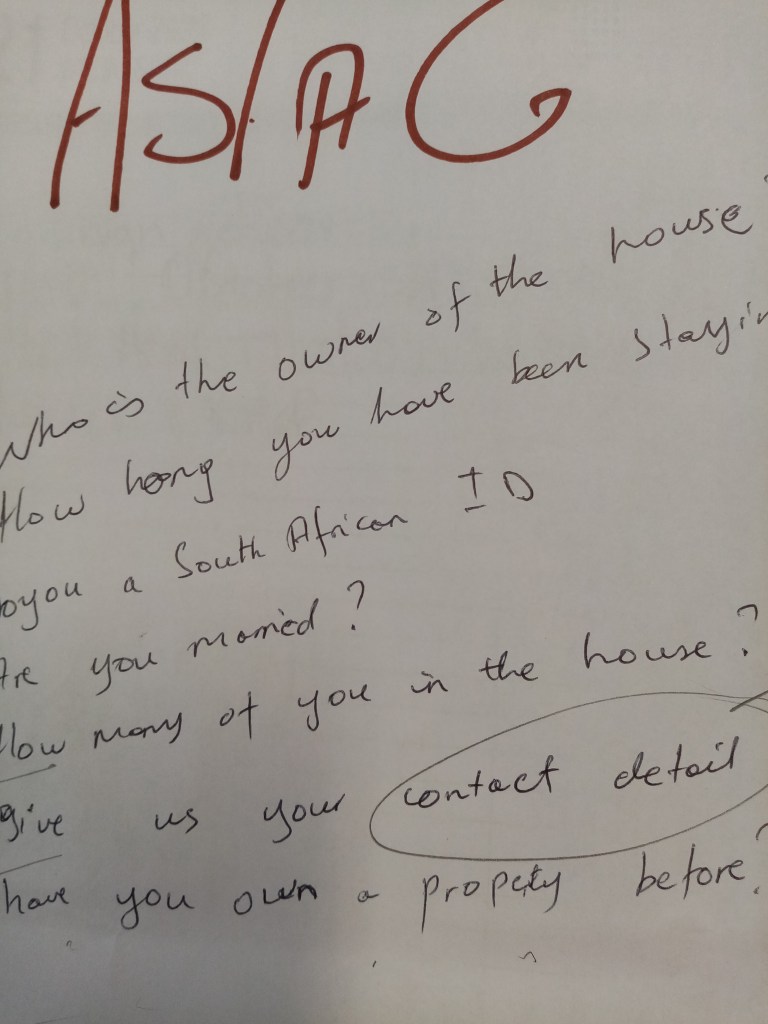 AS/AG
Who is the owner of the house?
How long you have been stayin
Do you a South African ID
Are you married?
How many of you in the house?
give us your contact detail
have you own a propety before?